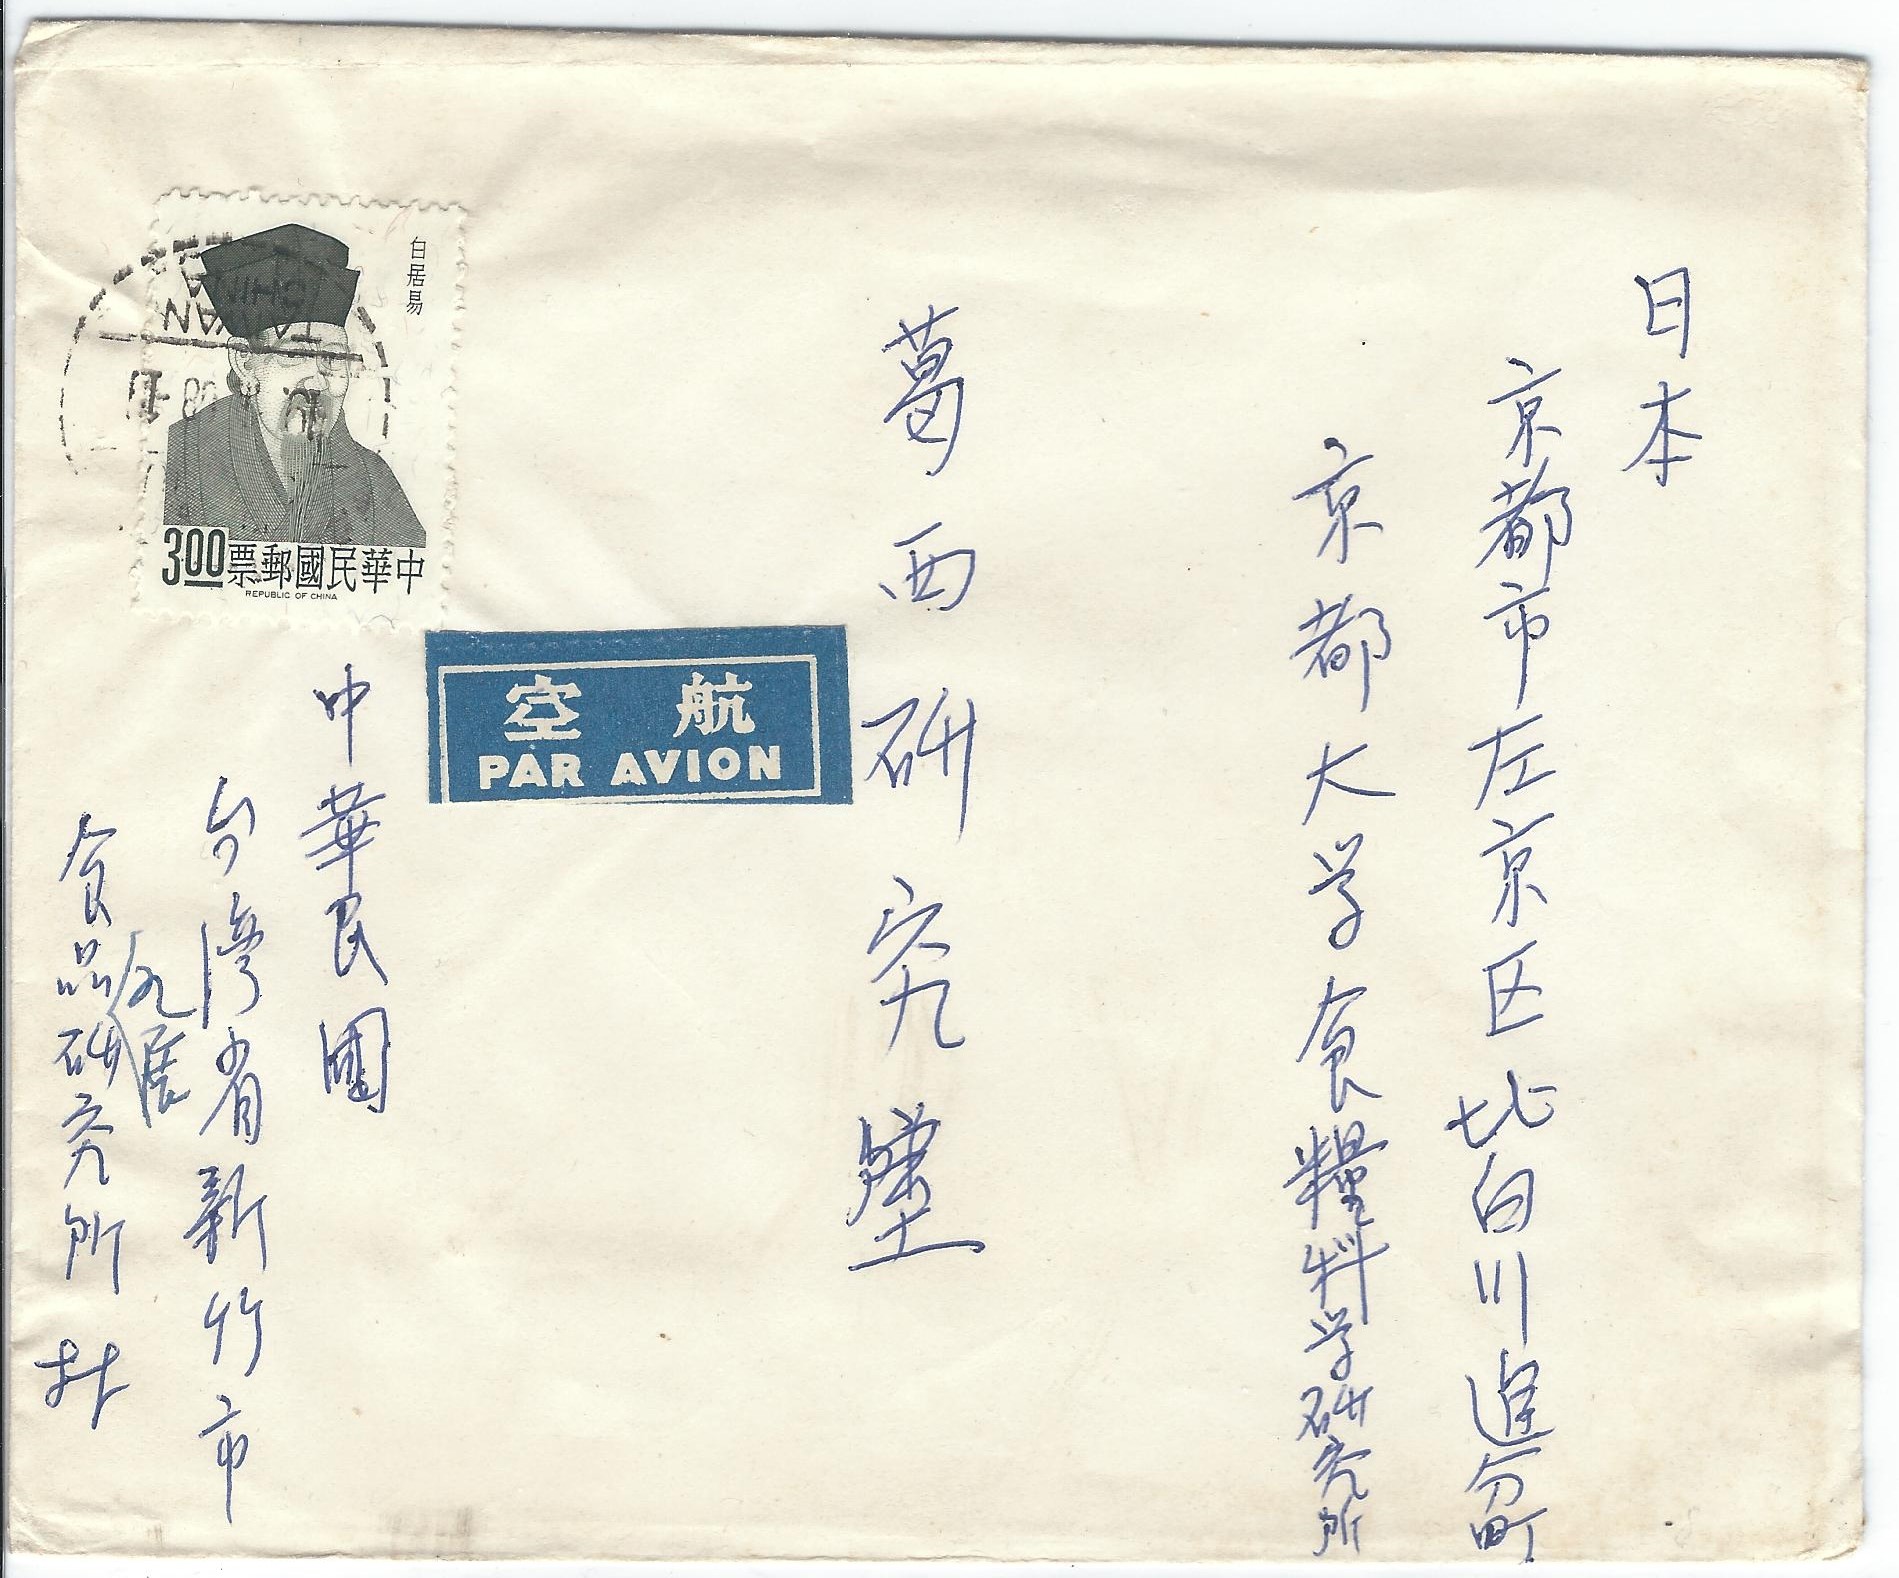 日本
京都市左京区北白川追分町
京都大学食糧科学研究所
葛西研究室
航空
PAR AVION
白居易
3.00
中華民國郵票
REPUBLIC OF CHINA
中華民國
台灣省新竹市
食品研究所